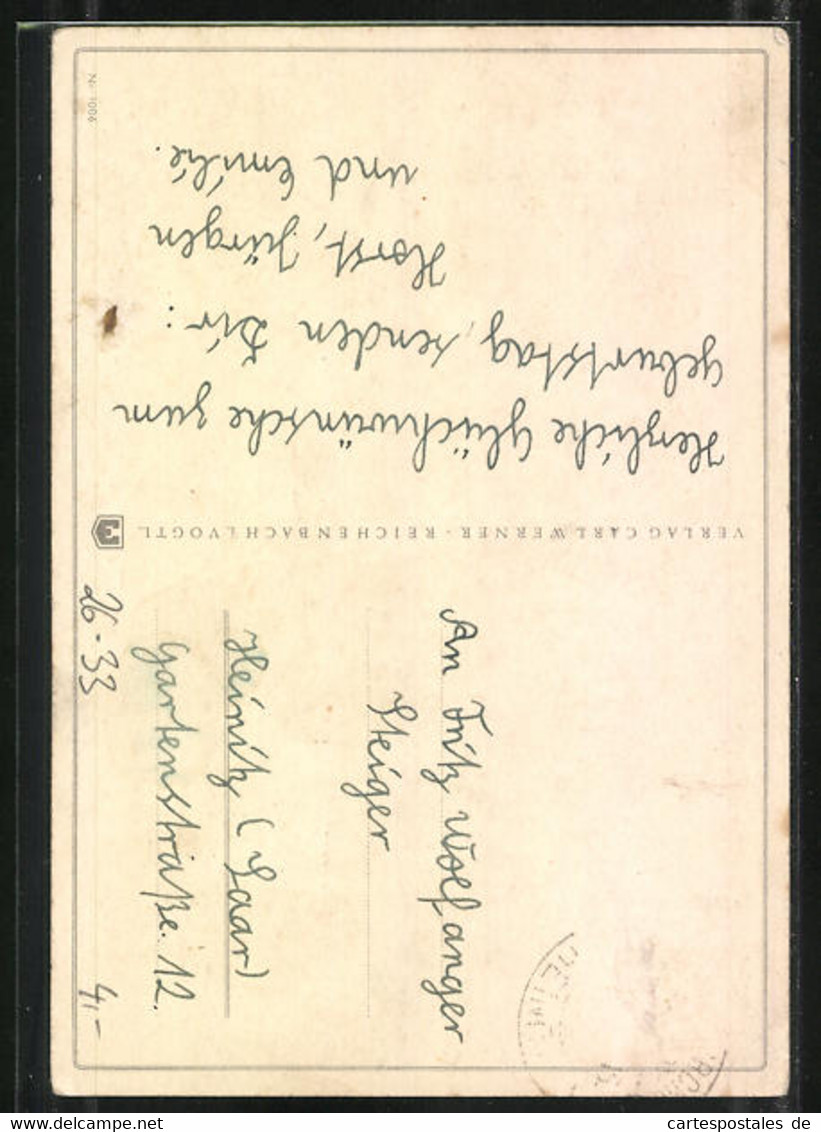 Nr. 1006
Herzliche Glückwünsche zum
Geburtstag, senden Dir:
Horst, Jürgen
und Emilie.
VERLAG CARL WERNER · REICHENBACH I. VOGTL.
An Fritz Wolfanger
Steiger
Heinitz (Saar)
Gartenstraße. 12.
26-33
4,-
cartespostales de